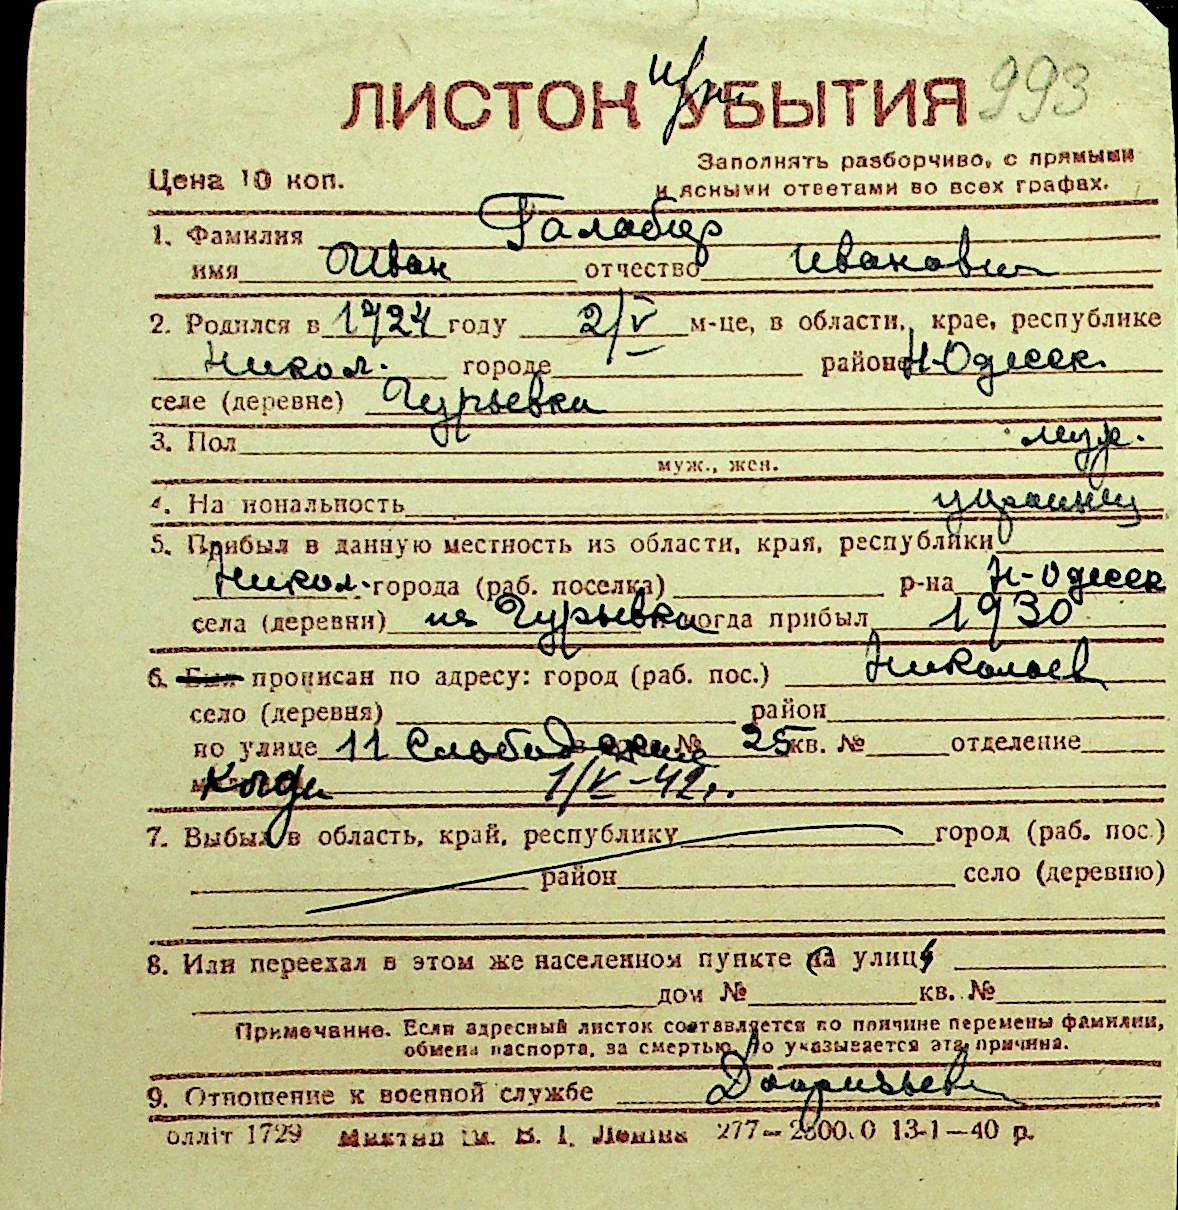 ЛИСТОК УБЫТИЯ 993
при
Цена 10 коп.
Заполнять разборчиво, с прямыми
и ясными ответами во всех графах.
1. Фамилия Галабир
имя Иван отчество Иванович
2. Родился в 1924 году 2/V м-це, в области, крае, республике
Никол. городе районе Н-Одесск.
селе (деревне) Гурьевка
3. Пол муж.
муж., жен.
4. Национальность украинец
5. Прибыл в данную местность из области, края, республики
Никол. города (раб. поселка) р-на Н-Одесск
села (деревни) из Гурьевка когда прибыл 1930
6. Был прописан по адресу: город (раб. пос.) Николаев
село (деревня) район
по улице 11 Слободская № 25 кв. № отделение
1/V-42 г.
7. Выбыл в область, край, республику город (раб. пос.)
район село (деревню)
8. Или переехал в этом же населенном пункте на улицу
дом № кв. №
Примечание. Если адресный листок составляется по причине перемены фамилии,
обмена паспорта, за смертью, то указывается эта причина.
9. Отношение к военной службе
олліт 1729 Миктип ім. В. І. Леніна 277—2800.0 13-1—40 р.